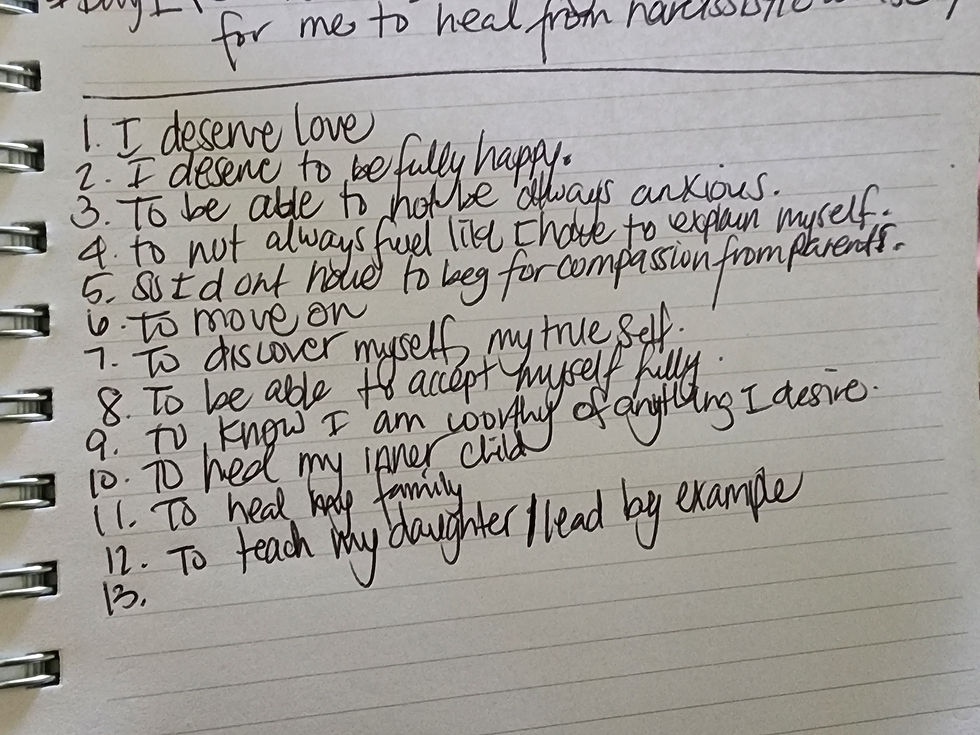 for me to heal from narcissistic
1. I deserve love
2. I deserve to be fully happy.
3. To be able to not be always anxious.
4. to not always fuel like I have to explain myself.
5. So I dont have to beg for compassion from parents.
6. To move on
7. To discover myself, my true self.
8. To be able to accept myself fully.
9. To know I am worthy of anything I desire.
10. To heal my inner child
11. To heal my family
12. To teach my daughter / lead by example
13.